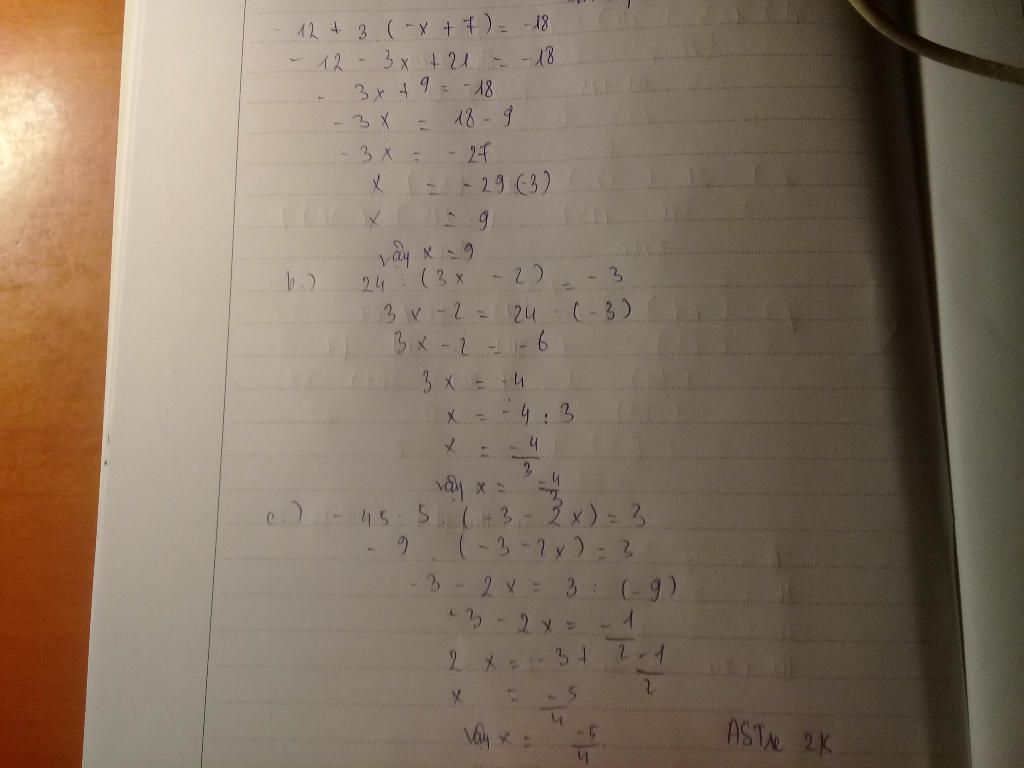 - 12 + 3 . (-x + 7) = -18
- 12 - 3x + 21 = -18
- 3x + 9 = -18
- 3x = 18 - 9
- 3x = -27
x = -29(-3)
x = 9
Vậy x = 9
b.) 24 : (3x - 2) = -3
3x - 2 = 24 : (-3)
3x - 2 = -6
3x = -4
x = -4 : 3
x = -4/3
Vậy x = -4/3
c.) - 45 : 5 . (-3 - 2x) = 3
- 9 . (-3 - 2x) = 3
-3 - 2x = 3 : (-9)
-3 - 2x = -1/2
2x = -3 + -1/2
x = -5/4
Vậy x = -5/4
2K